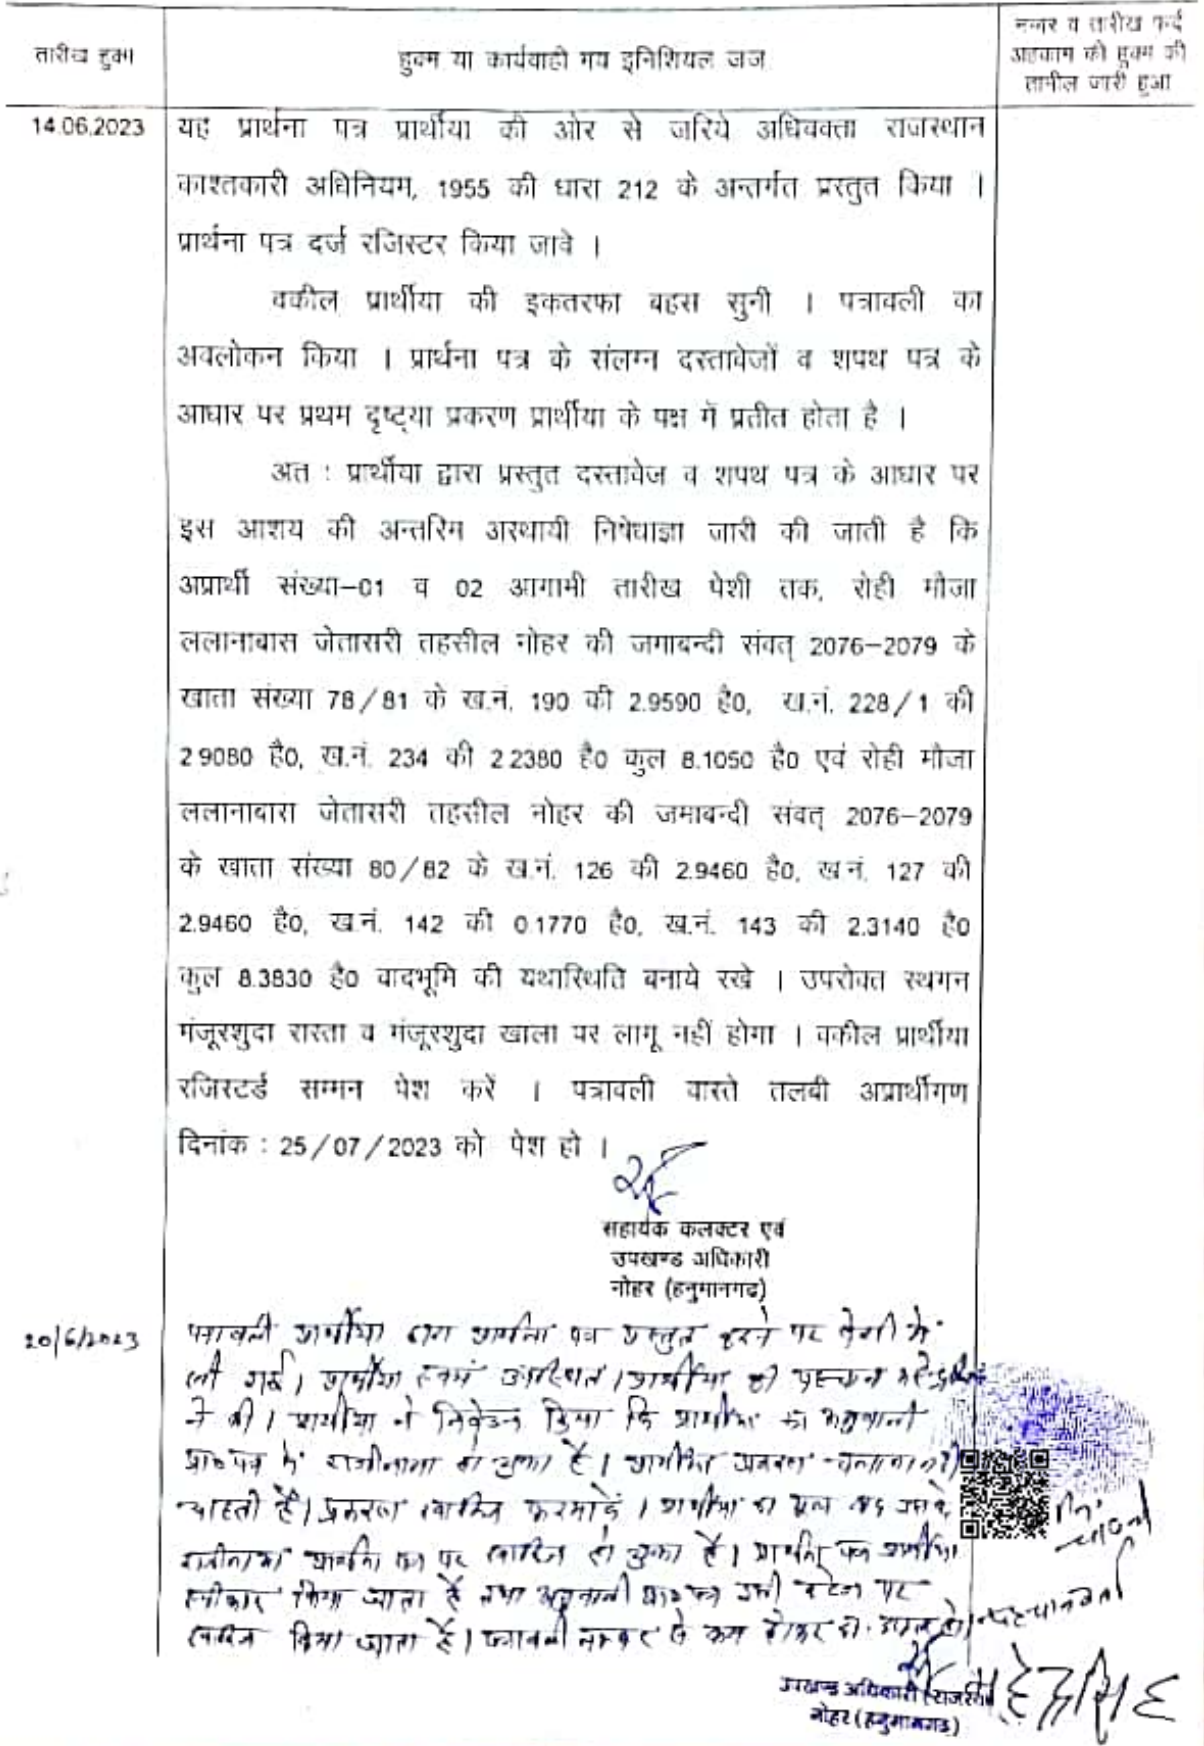 तारीख हुक्म
हुक्म या कार्यवाही मय इनिशियल जज
नम्बर व तारीख फर्द
अहकाम की हुक्म की
तामील जारी हुआ
14.06.2023
यह प्रार्थना पत्र प्रार्थीया की ओर से जरिये अधिवक्ता राजस्थान
काश्तकारी अधिनियम, 1955 की धारा 212 के अन्तर्गत प्रस्तुत किया ।
प्रार्थना पत्र दर्ज रजिस्टर किया जावे ।
वकील प्रार्थीया की इकतरफा बहस सुनी । पत्रावली का
अवलोकन किया । प्रार्थना पत्र के संलग्न दस्तावेजों व शपथ पत्र के
आधार पर प्रथम दृष्ट्या प्रकरण प्रार्थीया के पक्ष में प्रतीत होता है ।
अत : प्रार्थीया द्वारा प्रस्तुत दस्तावेज व शपथ पत्र के आधार पर
इस आशय की अन्तरिम अस्थायी निषेधाज्ञा जारी की जाती है कि
अप्रार्थी संख्या-01 व 02 आगामी तारीख पेशी तक, रोही मौजा
ललानाबास जेतासरी तहसील नोहर की जमाबन्दी संवत् 2076-2079 के
खाता संख्या 78/81 के ख.नं. 190 की 2.9590 है0, ख.नं. 228/1 की
2.9080 है0, ख.नं. 234 की 2.2380 है0 कुल 8.1050 है0 एवं रोही मौजा
ललानाबास जेतासरी तहसील नोहर की जमाबन्दी संवत् 2076-2079
के खाता संख्या 80/82 के ख.नं. 126 की 2.9460 है0, ख.नं. 127 की
2.9460 है0, ख.नं. 142 की 0.1770 है0, ख.नं. 143 की 2.3140 है0
कुल 8.3830 है0 वादभूमि की यथास्थिति बनाये रखे । उपरोक्त स्थगन
मंजूरशुदा रास्ता व मंजूरशुदा खाला पर लागू नहीं होगा । वकील प्रार्थीया
रजिस्टर्ड सम्मन पेश करें । पत्रावली वास्ते तलबी अप्रार्थीगण
दिनांक : 25/07/2023 को पेश हो ।
सहायक कलक्टर एवं
उपखण्ड अधिकारी
नोहर (हनुमानगढ)
20/6/2023
पत्रावली प्रार्थीया द्वारा प्रार्थना पत्र प्रस्तुत करने पर पेशी में
ली गई। प्रार्थीया स्वयं उपस्थित। प्रार्थीया की पहचान
ने की। प्रार्थीया ने निवेदन किया कि प्रार्थीया का
में राजीनामा हो चुका है। प्रकरण चलाना नहीं
चाहती है। प्रकरण खारिज फरमावें। प्रार्थीया का मूल वाद
राजीनामा प्रार्थना पत्र पर खारिज हो चुका है। प्रार्थना पत्र प्रार्थीया
स्वीकार किया जाता है तथा इसी स्टेज पर
खारिज किया जाता है। पत्रावली नम्बर से कम होकर दा. दफ्तर हो।
उपखण्ड अधिकारी (राजस्व)
नोहर (हनुमानगढ)